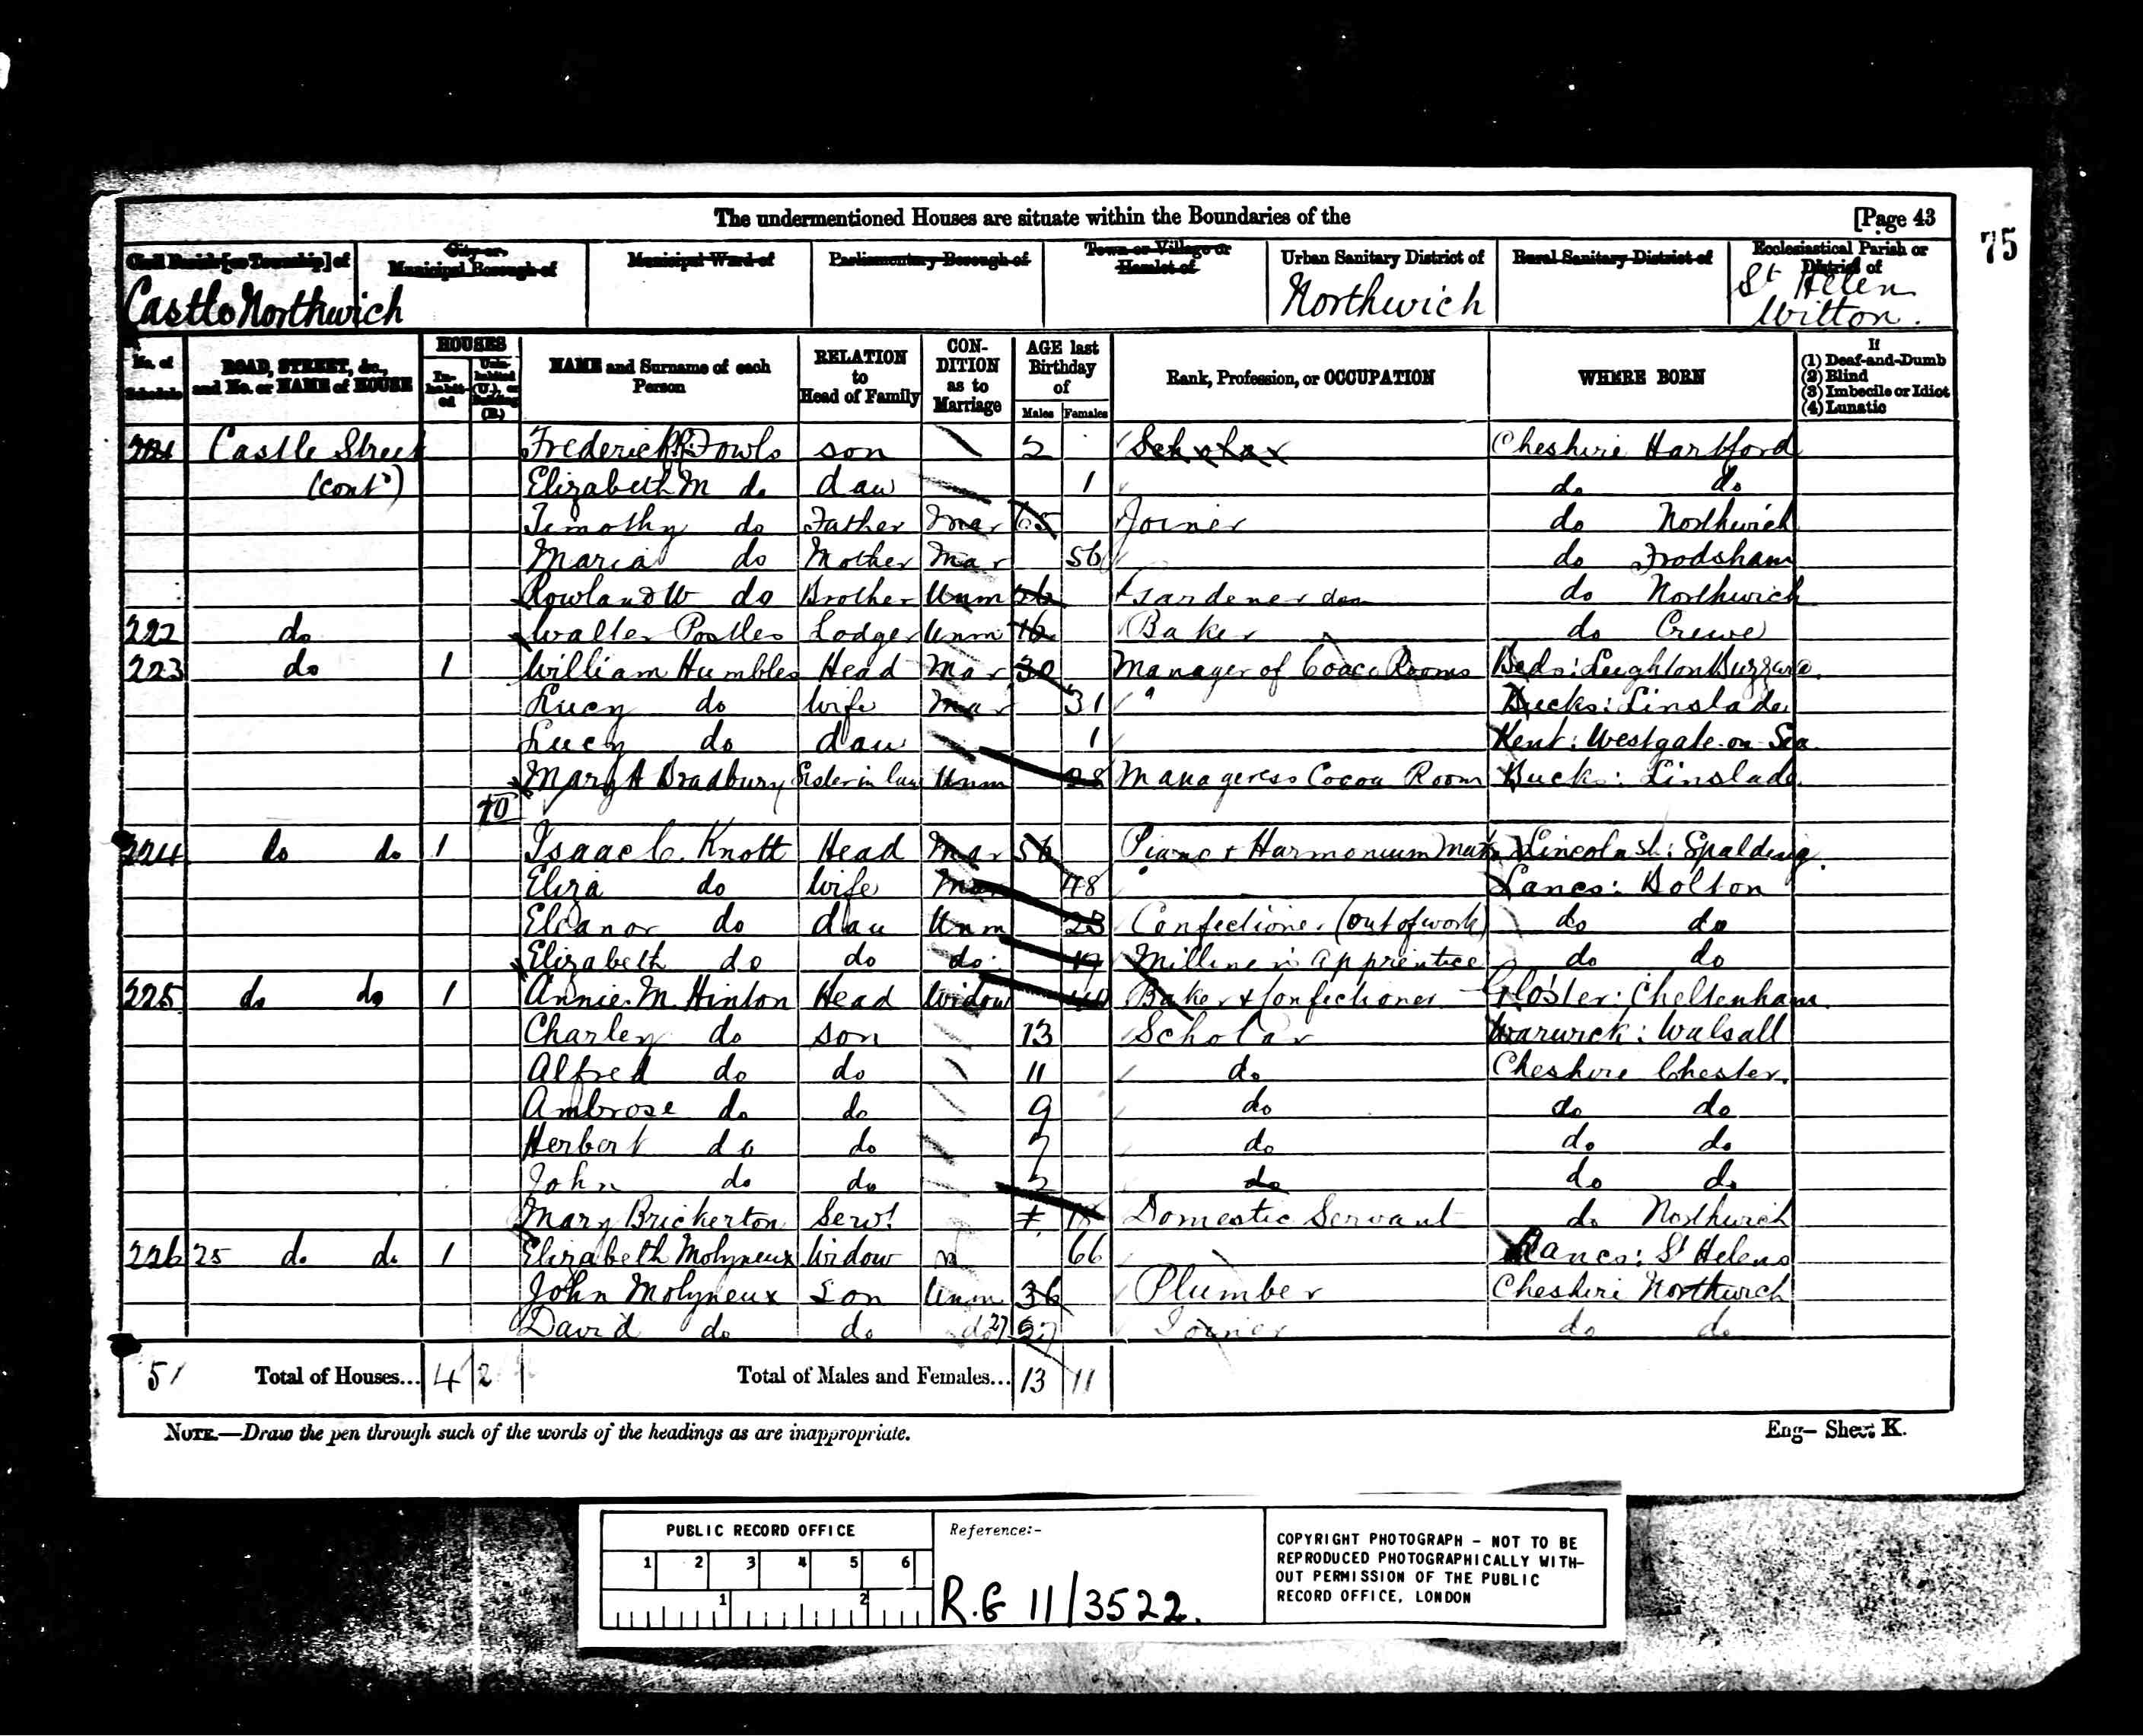 The undermentioned Houses are situate within the Boundaries of the [Page 43
75
Civil Parish [or Township] of
City or Municipal Borough of
Municipal Ward of
Parliamentary Borough of
Town or Village or Hamlet of
Urban Sanitary District of
Rural Sanitary District of
Ecclesiastical Parish or District of
Castle Northwich Northwich St Helen Witton.
No. of Schedule
ROAD, STREET, &c., and No. or NAME of HOUSE
HOUSES
In-habit-ed
Unin-habited (U.), or Building (B.)
NAME and Surname of each Person
RELATION to Head of Family
CON-DITION as to Marriage
AGE last Birthday of
Males Females
Rank, Profession, or OCCUPATION
WHERE BORN
If
(1) Deaf-and-Dumb
(2) Blind
(3) Imbecile or Idiot
(4) Lunatic
221 Castle Street Frederick Fowls son 2 Scholar Cheshire Hartford
(contd) Elizabeth M do dau 1 do do
Timothy do Father Mar 65 Joiner do Northwich
Maria do Mother Mar 56 do Frodsham
Rowland W do Brother Unm 26 Gardener dom do Northwich
222 do Walter Postles Lodger Unm 16 Baker do Crewe
223 do 1 William Humbles Head Mar 30 Manager of Cocoa Rooms Beds: Leighton Buzzard.
Lucy do Wife Mar 31 " Bucks: Linslade
Lucy do dau 1 Kent: Westgate-on-Sea
Mary A Bradbury Sister in law Unm 28 Manageress Cocoa Room Bucks: Linslade
224 do do 1 Isaac C. Knott Head Mar 56 Piano & Harmonium Maker Lincolnsh: Spalding.
Eliza do Wife Mar 48 Lancs: Bolton
Eleanor do dau Unm 23 Confectioner (out of work) do do
Elizabeth do do do. 19 Milliner's apprentice do do
225 do do 1 Annie M. Hinton Head Widow Baker & Confectioner Gloster: Cheltenham.
Charley do son 13 Scholar Warwick: Walsall
Alfred do do 11 do Cheshire Chester.
Ambrose do do 9 do do do
Herbert do do 7 do do do
John do do do do do
Mary Brickerton Servt Domestic Servant do Northwich
226 25 do do 1 Elizabeth Molyneux Widow 66 Lancs: St Helens
John Molyneux Son Unm 36 Plumber Cheshire Northwich
David do do do 27 27 Joiner do do
51 Total of Houses... 4 2 Total of Males and Females... 13 11
NOTE.—Draw the pen through such of the words of the headings as are inappropriate.
Eng– Sheet K.
PUBLIC RECORD OFFICE
1 2 3 4 5 6
1 2
Reference:-
R.G 11/3522.
COPYRIGHT PHOTOGRAPH – NOT TO BE
REPRODUCED PHOTOGRAPHICALLY WITH-
OUT PERMISSION OF THE PUBLIC
RECORD OFFICE, LONDON